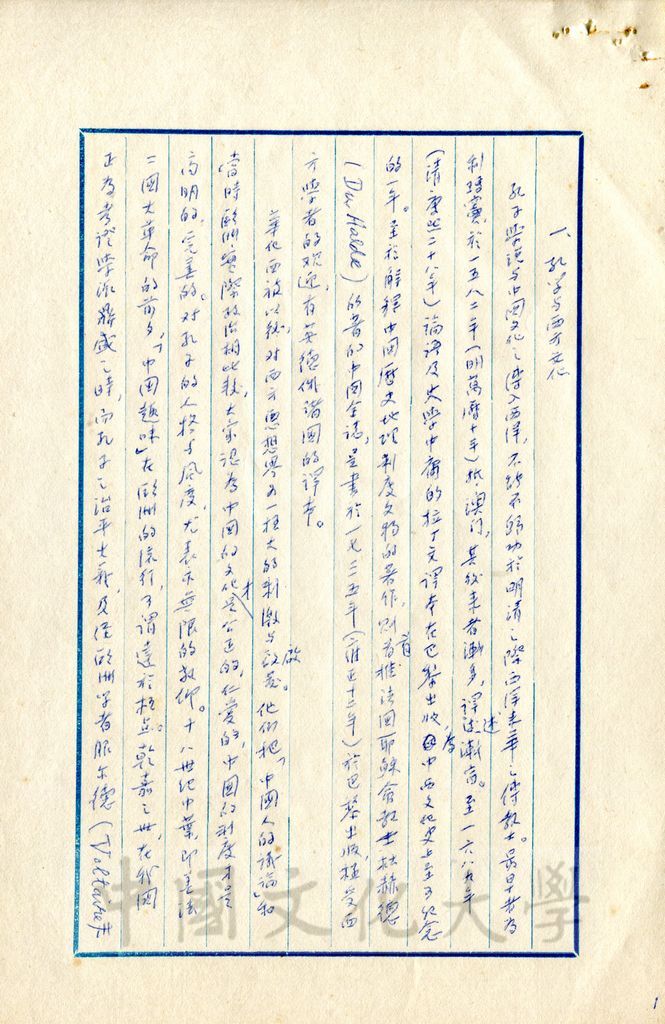 一、孔學與西方文化
孔子學說與中國文化之傳入西洋，不能不歸功於明清之際西洋來華之傳教士。最早者為
利瑪竇於一五八二年（明萬曆十年）抵澳門，其後來者漸多，譯述漸富。至一六八九年
（清康熙二十八年）論語及大學中庸的拉丁文譯本在巴黎出版，為中西文化史上至可紀念
的一年。至於解釋中國歷史地理制度文物的著作，則首推法國耶穌會教士杜赫德
（Du Halde）的著的中國全誌，是書於一七三五年（雍正十三年）於巴黎出版，極受西
方學者的歡迎，有英德俄諸國的譯本。
華化西被以後，對西方思想界為一極大的刺激與啟發。他們把「中國人的議論」和
當時歐洲實際政治相比較，大家認為中國的文化是公正的，仁愛的，中國的制度才是
高明的，完善的。對孔子的人格與風度，尤表示無限的敬仰。十八世紀中葉，即美法
二國大革命的前夕，「中國趣味」在歐洲的流行，可謂達於極點。乾嘉之世，在我國
正為考證學派鼎盛之時，而孔子之治平大義，反從歐洲學者服爾德（Voltaire）
中國文化大學
1